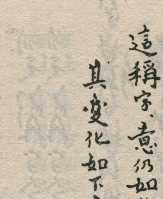 這稱字、意仍如
其變化如下